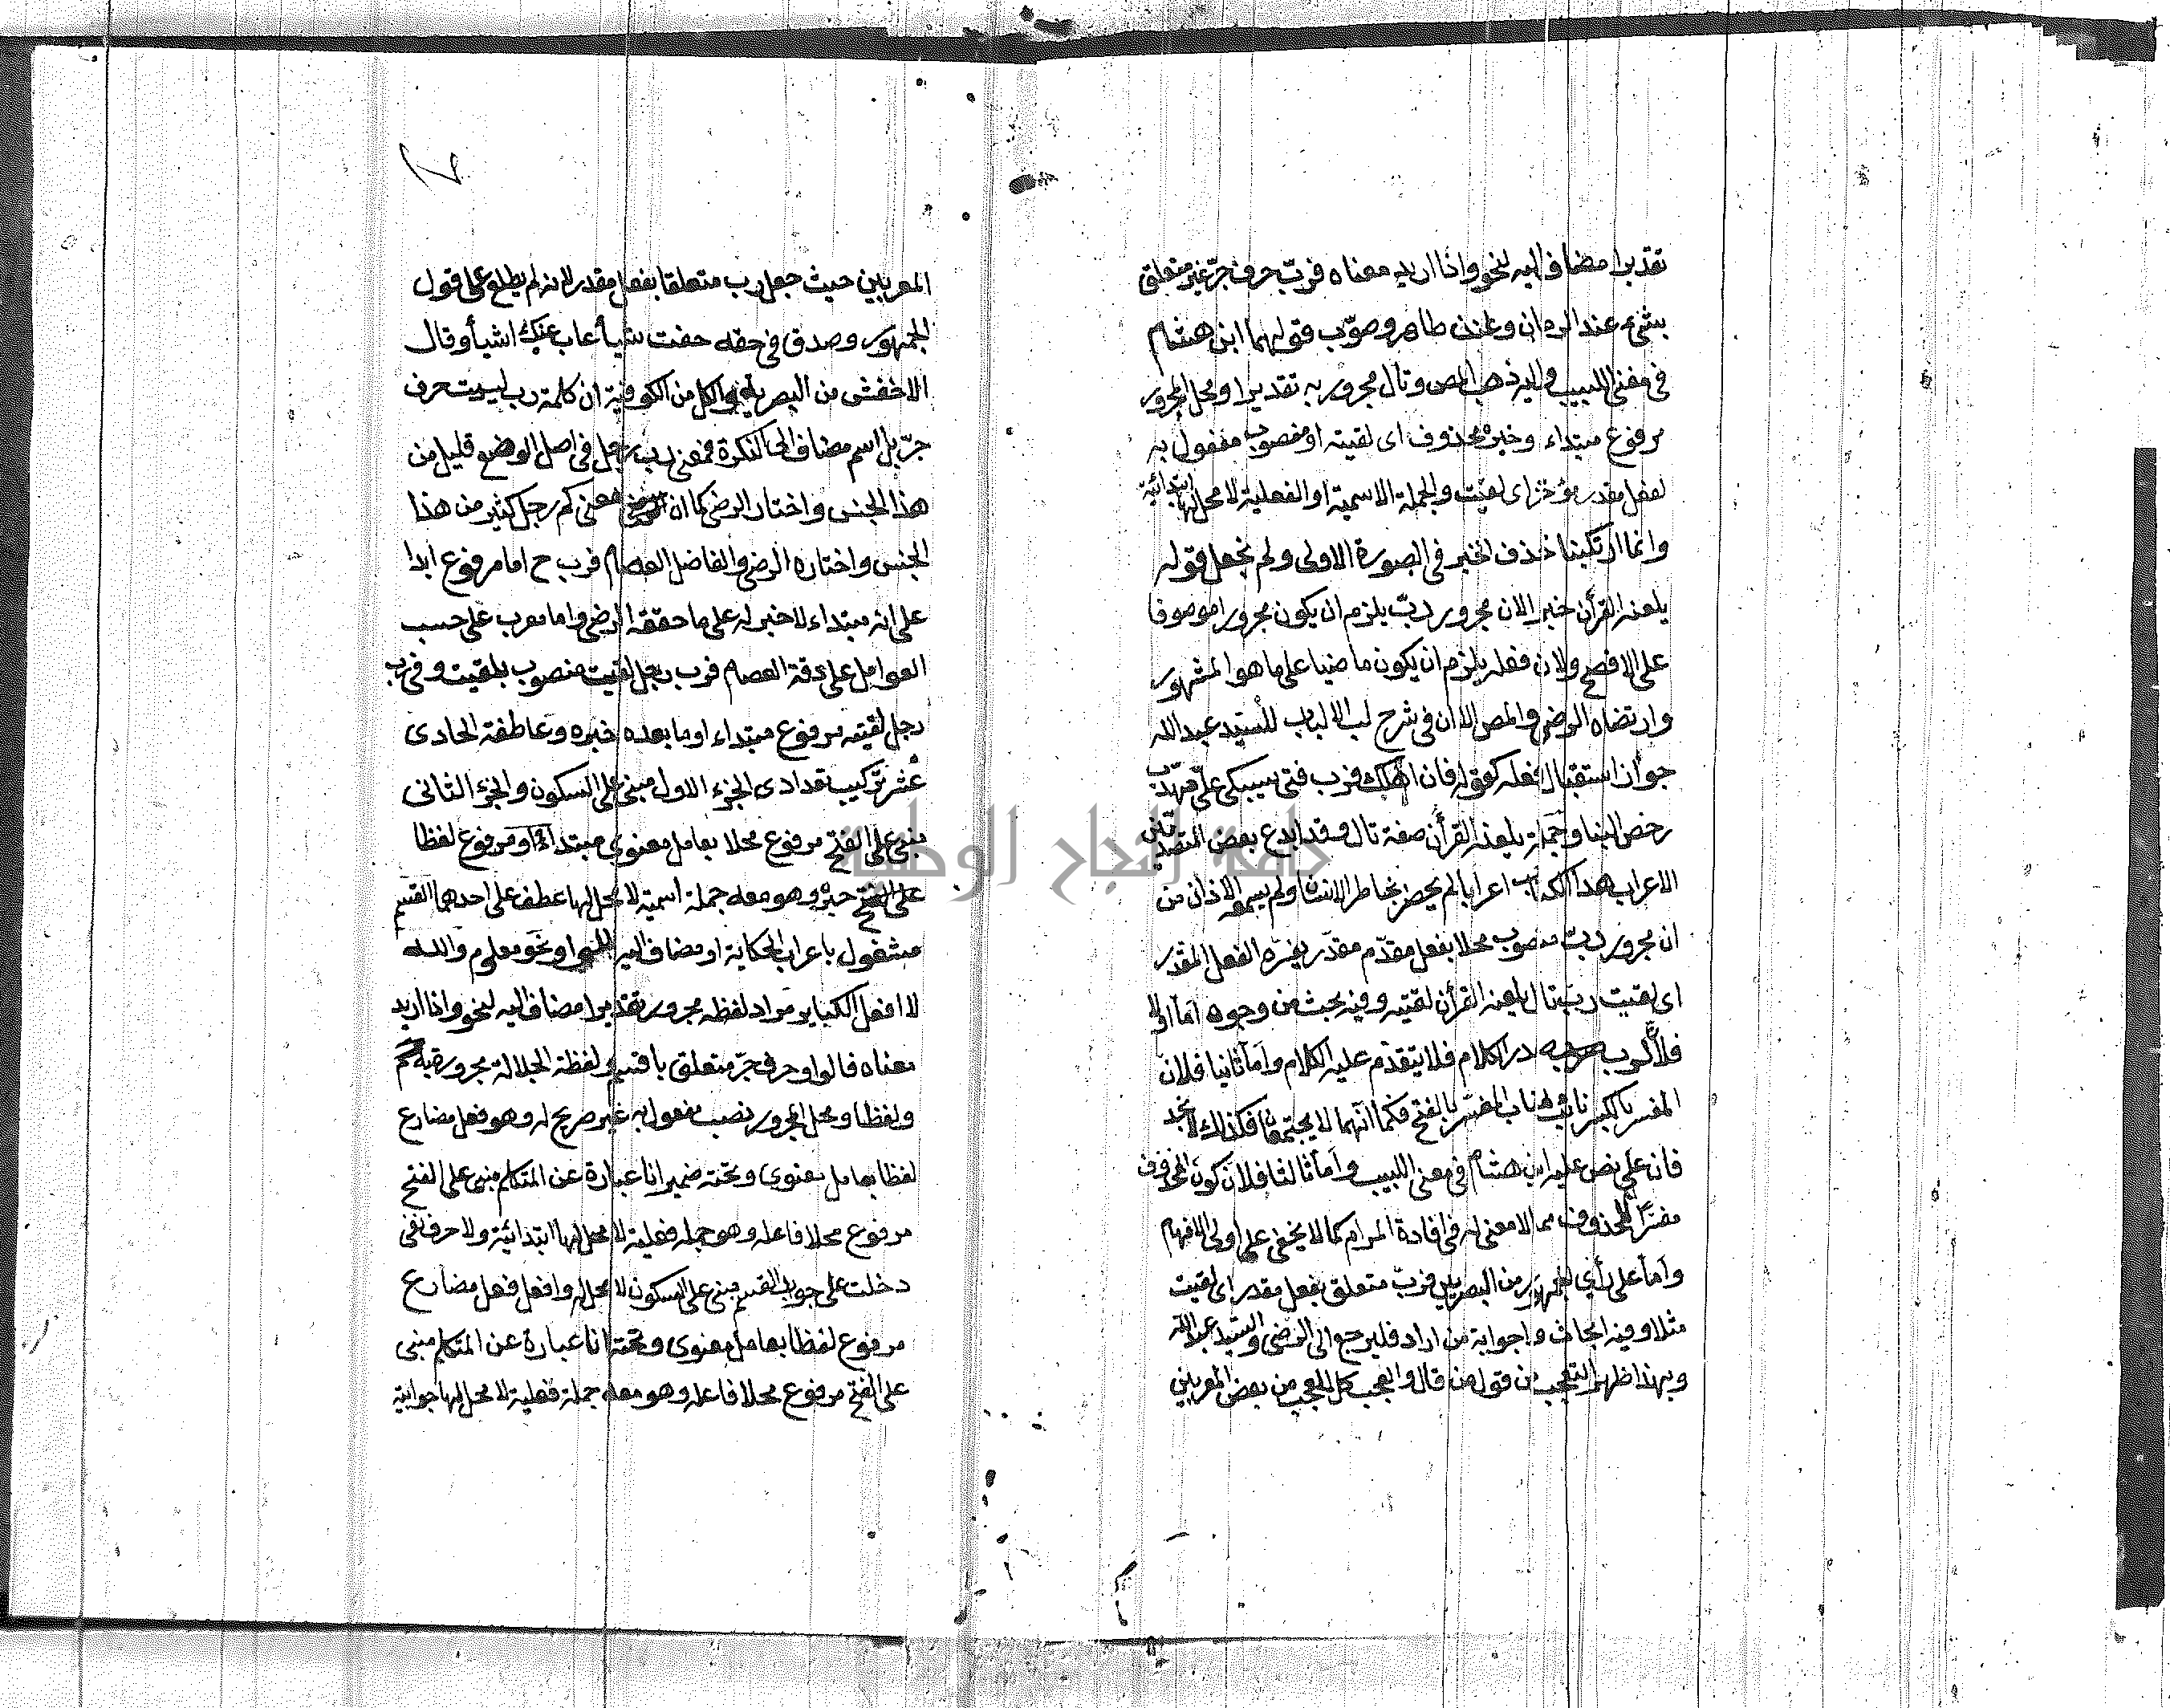 تقديرا مضاف اليه لنحو واذا اريد معناه فربّ حرف جرّ غير متعلق
بشئ عند الرماني وابن طاهر وصوّب قولهما ابن هشام
فى مغنى اللبيب واليه ذهب المص وتال مجرور به تقديرا ومحل المجرور
مرفوع مبتداء وخبره محذوف اى لقيته او منصوب مفعول به
لفعل مقدر مؤخر اى لقيت والجملة الاسمية او الفعلية لا محل لها ابتدائية
وانما ارتكبنا حذف الخبر فى الصورة الاولى ولم نجعل قوله
يلعنه القرأن خبرا لان مجرور ربّ يلزم ان يكون مجرورا موصوفا
على الافصح ولان فعله يلزم ان يكون ماضيا على ما هو المشهور
وارتضاه الرضى والمص الا ان فى شرح لب الالباب للسيد عبد الله
جواز استقبال فعله كقوله فان اهلك فرب فتى سيبكى علىّ مهذب
رخص البنا وجملة يلعنه القرأن صفة تال وقد ابدع بعض المتصدين
الاعراب هذا الكتاب اعرابا لم يحضر بخاطر الانسا ولم يسمعه الآذان من
ان مجرور ربّ منصوب محلا بفعل مقدّم مقدّر يفسّره الفعل المقدر
اى لقيت ربّ تال يلعنه القرأن لقيته وفيه بحث من وجوه امّا اولا
فلأن لرب صدر الكلام فلا يتقدّم عليه الكلام وامّا ثانيا فلان
المفسر بالكسر نائب مناب المفسّر بالفتح فكما انهما لا يجتمعان فكذلك لا نجد
فانه على نص عليه ابن هشام فى مغنى اللبيب وامّا ثالثا فلان كون المحذوف
مفسّرا للمحذوف مما لا معنى له فى افادة المرام كما لا يخفى على اولى الافهام
وامّا على رأى الجمهور من البصريين فربّ متعلق بفعل مقدر اى لقيت
مثلا وفيه ابحاث واجوابة من اراد فليرجع الى الرضى والسيد عبد الله
وبهذا ظهر التعجب من قول من قال والعجب كل العجب من بعض المعربين
المعربين حيث جعل رب متعلقا بفعل مقدر لانه لم يطلع على قول
الجمهور وصدق فى حقه حفت شيأ غاب عنك اشيأ وقال
الاخفش من البصريين والكل من الكوفية ان كلمة رب ليست حرف
جرّ بل اسم مضاف الى النكرة فمعنى رب رجل فى اصل الوضع قليل من
هذا الجنس واختار الرضى كما ان معنى كم رجل كثير من هذا
الجنس واختاره الرضى والفاضل العصام فرب ح اما مرفوع ابدا
على انه مبتداء لا خبر له على ما حققه الرضى واما معرب على حسب
العوامل على دقة العصام فرب رجل لقيت منصوب بلقيت وفى رب
رجل لقيته مرفوع مبتداء او ما بعده خبره وعاطفة الحادى
عشر تركيب تعدادى الجزء الاول مبنى على السكون والجزء الثانى
مبنى على الفتح مرفوع محلا بعامل معنوى مبتداء او مرفوع لفظا
على الفتح خبره وهو معه جملة اسمية لا محل لها عطف على احدهما القسم
مشغول باعراب الحكاية او مضاف اليه للنحو او نحو معلوم والله
لا افعل الكبائر مراد لفظه مجرور تقديرا مضاف اليه لنحو واذا اريد
معناه فالواو حرف جرّ متعلق باقسم ولفظة الجلالة مجرور به
ولفظا ومحل المجرور نصب مفعول به غير صريح له وهو فعل مضارع
لفظا بعامل معنوى وتحته ضمير انا عبارة عن المتكلم مبنى على الفتح
مرفوع محلا فاعله وهو جملة فعلية لا محل لها ابتدائية ولا حرف نفى
دخلت على جواب القسم مبنى على السكون لا محل له وافعل فعل مضارع
مرفوع لفظا بعامل معنوى وتحته انا عبارة عن المتكلم مبنى
على الفتح مرفوع محلا فاعله وهو معه جملة فعلية لا محل لها جوابية
جامعة النجاح الوطنية